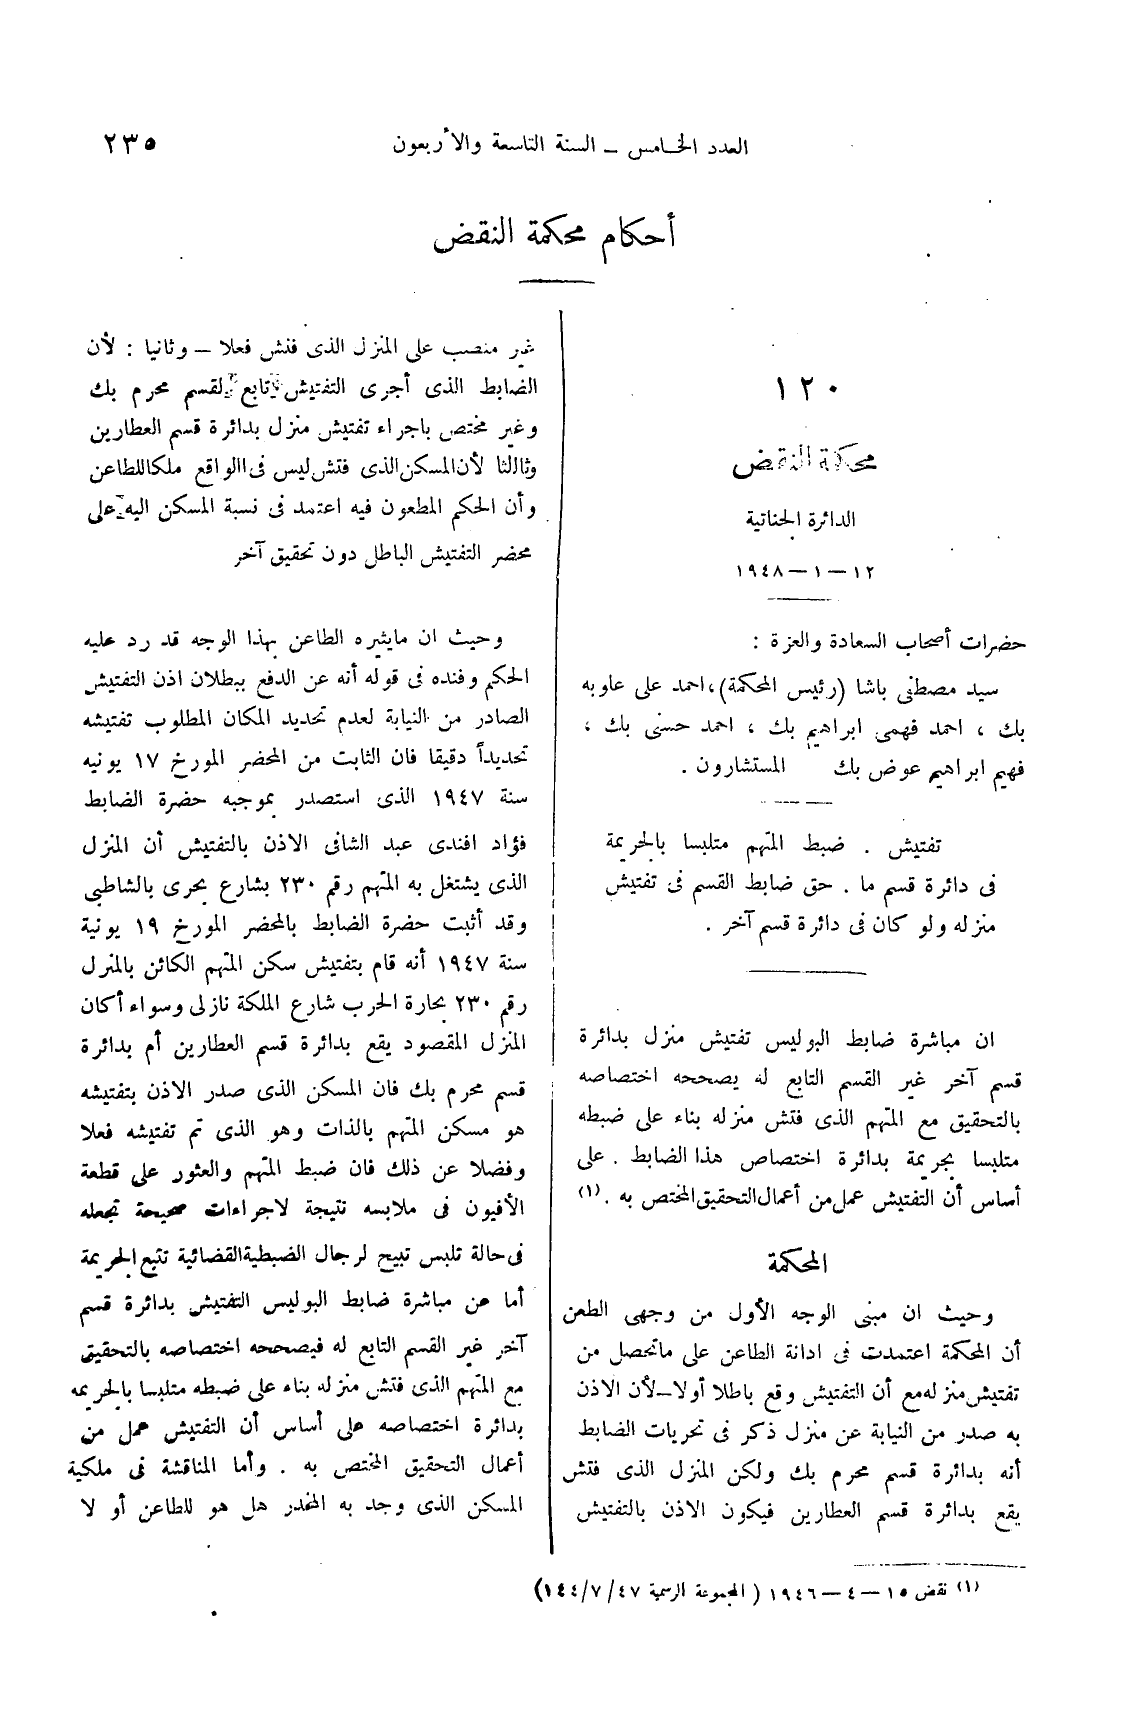 العدد الخامس – السنة التاسعة والأربعون
٢٣٥
أحكام محكمة النقض
١٢٠
محكمة النقض
الدائرة الجنائية
١٢ – ١ – ١٩٤٨
حضرات أصحاب السعادة والعزة :
سيد مصطفى باشا (رئيس المحكمة)، احمد على علوبه
بك ، احمد فهمى ابراهيم بك ، احمد حسنى بك ،
فهيم ابراهيم عوض بك المستشارون .
تفتيش . ضبط المتهم متلبسا بالجريمة
فى دائرة قسم ما . حق ضابط القسم فى تفتيش
منزله ولو كان فى دائرة قسم آخر .
ان مباشرة ضابط البوليس تفتيش منزل بدائرة
قسم آخر غير القسم التابع له يصححه اختصاصه
بالتحقيق مع المتهم الذى فتش منزله بناء على ضبطه
متلبسا بجريمة بدائرة اختصاص هذا الضابط . على
أساس أن التفتيش عمل من أعمال التحقيق المختص به . (١)
المحكمة
وحيث ان مبنى الوجه الأول من وجهى الطعن
أن المحكمة اعتمدت فى ادانة الطاعن على ما تحصل من
تفتيش منزله مع أن التفتيش وقع باطلا أولا – لأن الاذن
به صدر من النيابة عن منزل ذكر فى تحريات الضابط
أنه بدائرة قسم محرم بك ولكن المنزل الذى فتش
يقع بدائرة قسم العطارين فيكون الاذن بالتفتيش
غير منصب على المنزل الذى فتش فعلا – وثانيا : لأن
الضابط الذى أجرى التفتيش تابع لقسم محرم بك
وغير مختص باجراء تفتيش منزل بدائرة قسم العطارين
وثالثا لأن المسكن الذى فتش ليس فى الواقع ملكا للطاعن
وأن الحكم المطعون فيه اعتمد فى نسبة المسكن اليه على
محضر التفتيش الباطل دون تحقيق آخر
وحيث ان مايثيره الطاعن بهذا الوجه قد رد عليه
الحكم وفنده فى قوله أنه عن الدفع ببطلان اذن التفتيش
الصادر من النيابة لعدم تحديد المكان المطلوب تفتيشه
تحديداً دقيقا فان الثابت من المحضر المورخ ١٧ يونيه
سنة ١٩٤٧ الذى استصدر بموجبه حضرة الضابط
فؤاد افندى عبد الشافى الاذن بالتفتيش أن المنزل
الذى يشتغل به المتهم رقم ٢٣٠ بشارع بحرى بالشاطبي
وقد أثبت حضرة الضابط بالمحضر المورخ ١٩ يونية
سنة ١٩٤٧ أنه قام بتفتيش سكن المتهم الكائن بالمنزل
رقم ٢٣٠ بحارة الحرب شارع الملكة نازلى وسواء أكان
المنزل المقصود يقع بدائرة قسم العطارين أم بدائرة
قسم محرم بك فان المسكن الذى صدر الاذن بتفتيشه
هو مسكن المتهم بالذات وهو الذى تم تفتيشه فعلا
وفضلا عن ذلك فان ضبط المتهم والعثور على قطعة
الأفيون فى ملابسه نتيجة لاجراءات صحيحة تجعله
فى حالة تلبس تبيح لرجال الضبطية القضائية تتبع الجريمة
أما عن مباشرة ضابط البوليس التفتيش بدائرة قسم
آخر غير القسم التابع له فيصححه اختصاصه بالتحقيق
مع المتهم الذى فتش منزله بناء على ضبطه متلبسا بالجريمه
بدائرة اختصاصه على أساس أن التفتيش عمل من
أعمال التحقيق المختص به . وأما المناقشة فى ملكية
المسكن الذى وجد به المخدر هل هو للطاعن أو لا
(١) نقض ١٥ – ٤ – ١٩٤٦ ( المجموعة الرسمية ١٤٤/٧/٤٧)